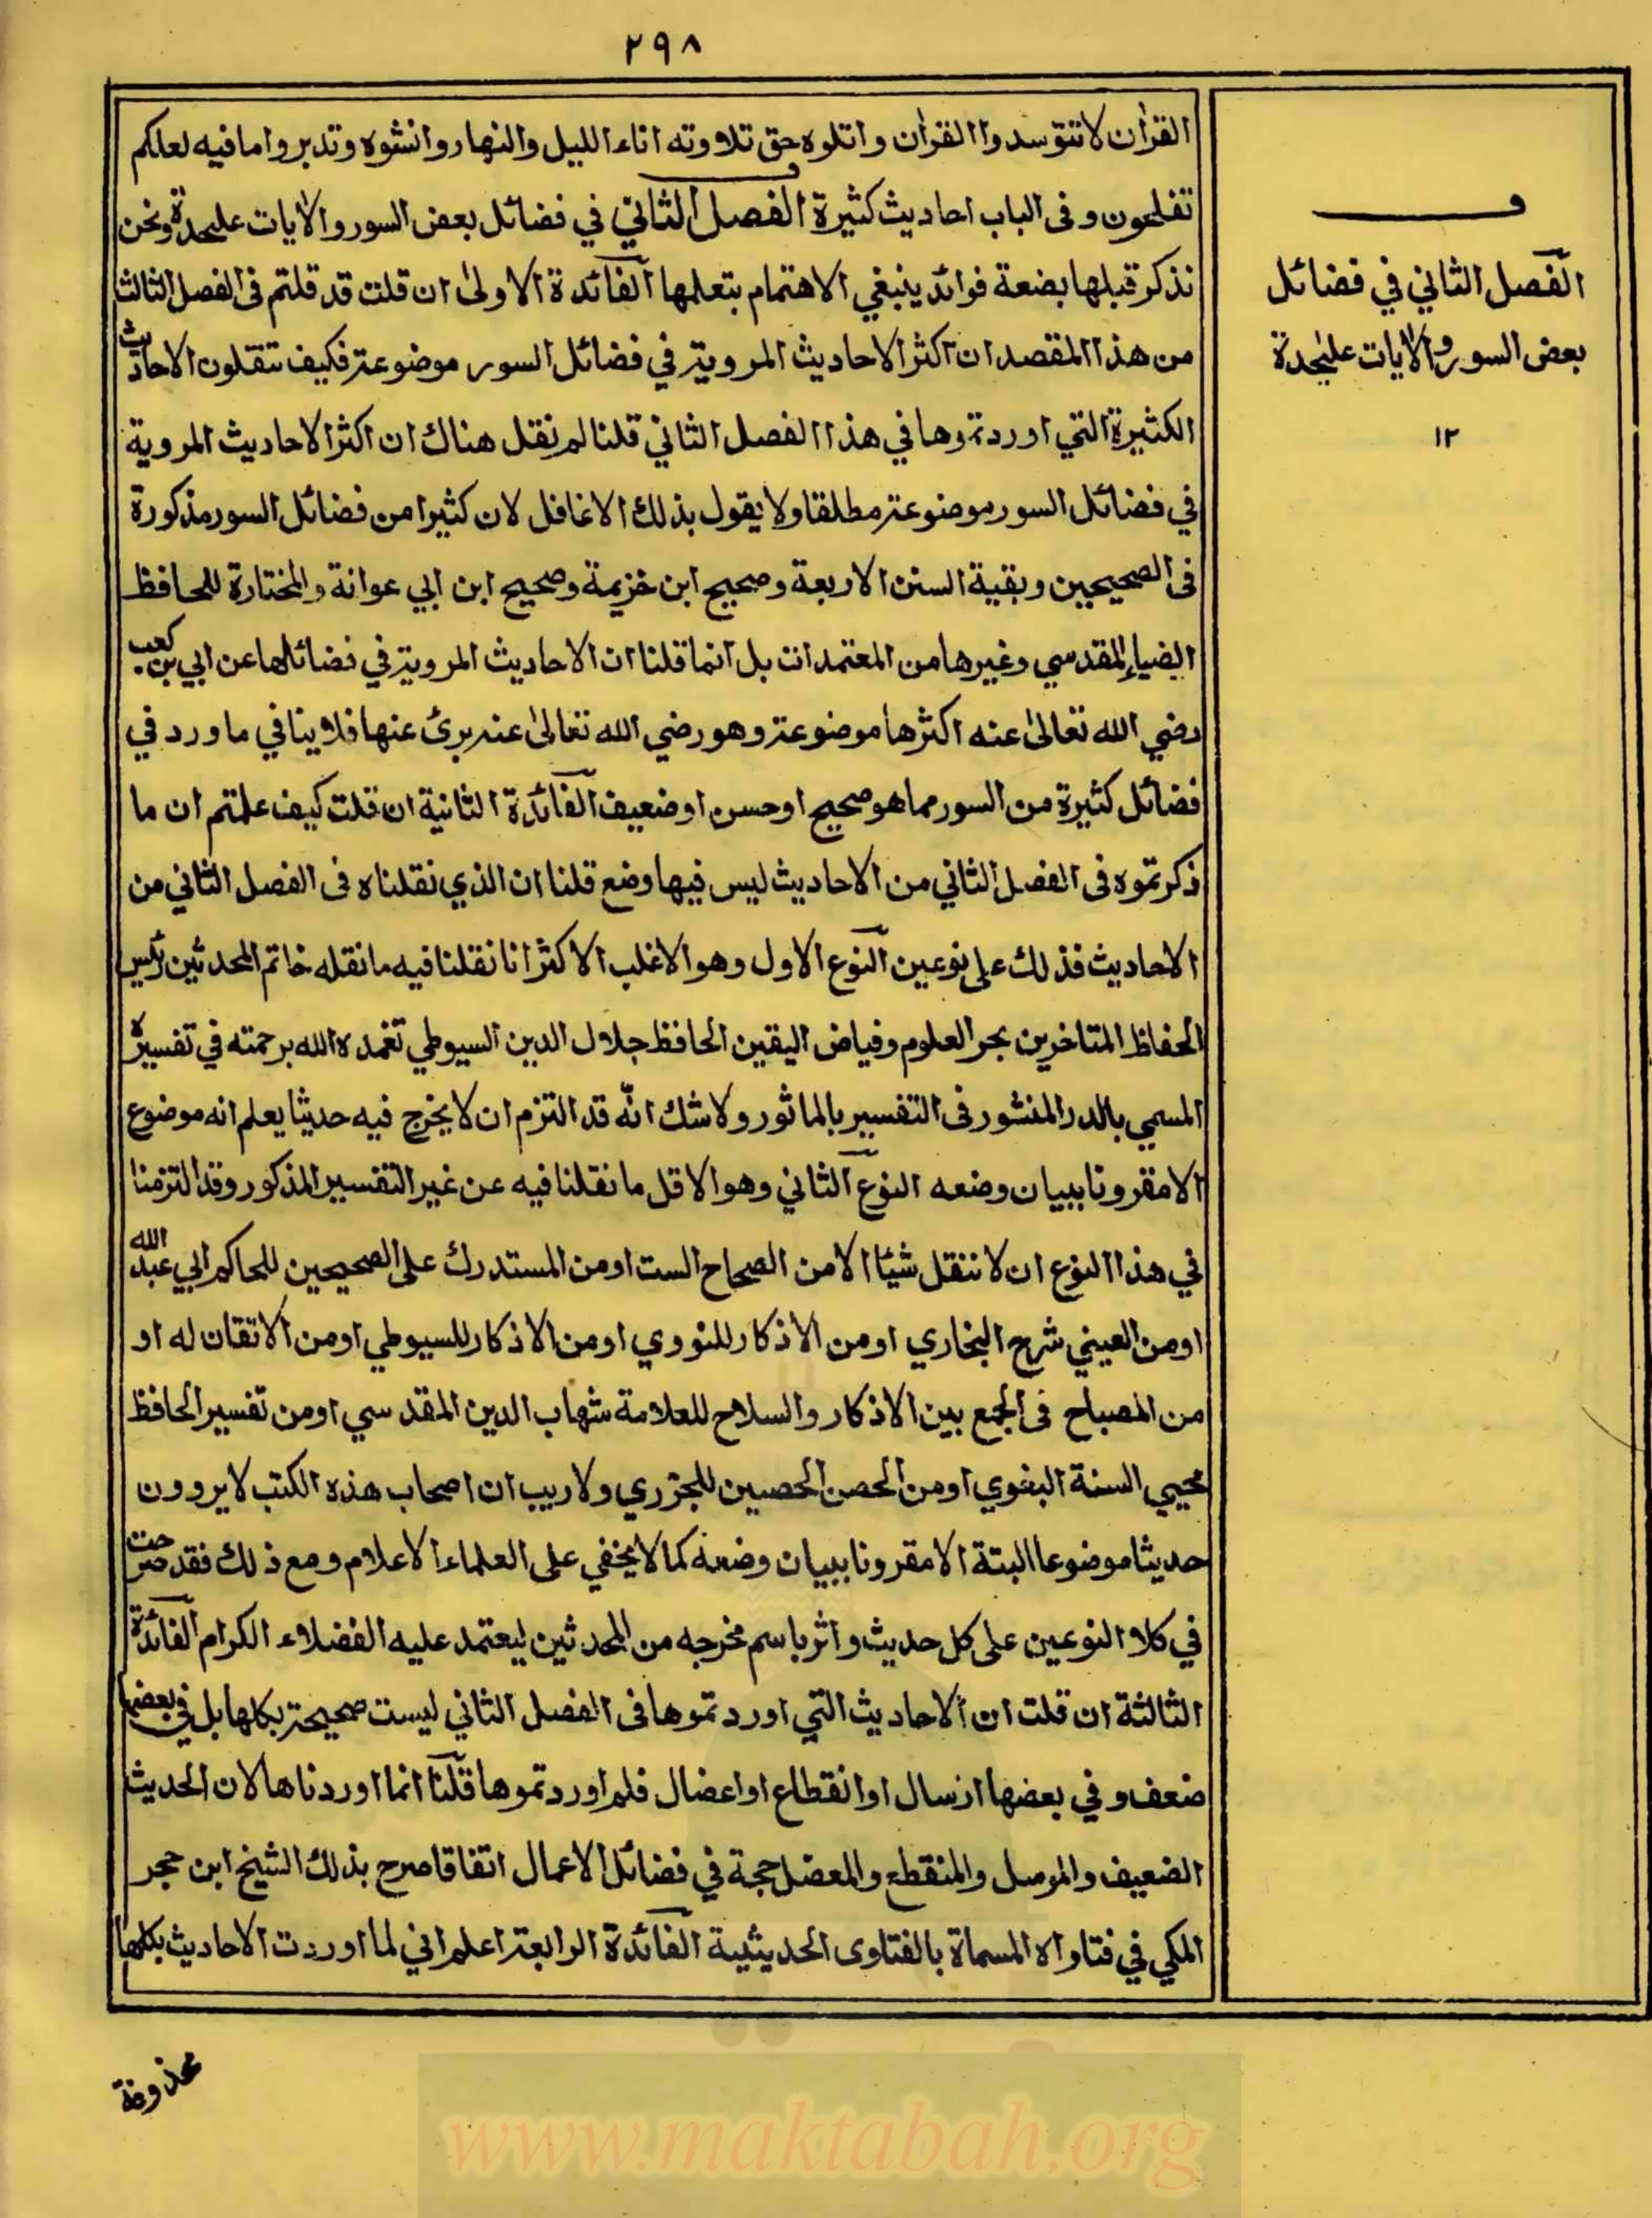 ٢٩٨
القرآن لا تتوسدوا القرآن واتلوه حق تلاوته اناء الليل والنهار وانشوه وتدبروا ما فيه لعلكم
تفلحون وفى الباب احاديث كثيرة الفصل الثاني في فضائل بعض السور والآيات عليحدة ونحن
نذكر قبلها بضعة فوائد ينبغي الاهتمام بتعلمها الفائدة الاولى ان قلت قد قلتم فى الفصل الثالث
من هذا المقصد ان اكثر الاحاديث المروية في فضائل السور موضوعة فكيف تنقلون الاحاديث
الكثيرة التي اوردتموها في هذا الفصل الثاني قلنا لم نقل هناك ان اكثر الاحاديث المروية
في فضائل السور موضوعة مطلقا ولا يقول بذلك الا غافل لان كثيرا من فضائل السور مذكورة
فى الصحيحين وبقية السنن الاربعة وصحيح ابن خزيمة وصحيح ابن ابي عوانة والمختارة للحافظ
الضياء المقدسي وغيرها من المعتمدات بل انما قلنا ان الاحاديث المروية في فضائلها عن ابي بن كعب
رضي الله تعالى عنه اكثرها موضوعة وهو رضي الله تعالى عنه برئ عنها فلا ينافي ما ورد في
فضائل كثيرة من السور مما هو صحيح او حسن او ضعيف الفائدة الثانية ان قلت كيف علمتم ان ما
ذكرتموه فى الفصل الثاني من الاحاديث ليس فيها وضع قلنا ان الذي نقلناه فى الفصل الثاني من
الاحاديث فذلك على نوعين النوع الاول وهو الاغلب الاكثر انا نقلنا فيه ما نقله خاتم المحدثين رئيس
الحفاظ المتاخرين بحر العلوم وفياض اليقين الحافظ جلال الدين السيوطي تغمده الله برحمته في تفسيره
المسمي بالدر المنثور فى التفسير بالماثور ولا شك انه قد التزم ان لا يخرج فيه حديثا يعلم انه موضوع
الا مقرونا ببيان وضعه النوع الثاني وهو الاقل ما نقلنا فيه عن غير التفسير المذكور وقد التزمنا
في هذا النوع ان لا ننقل شيئا الا من الصحاح الست او من المستدرك على الصحيحين للحاكم ابي عبد الله
او من العيني شرح البخاري او من الاذكار للنووي او من الاذكار للسيوطي او من الاتقان له او
من المصباح فى الجمع بين الاذكار والسلاح للعلامة شهاب الدين المقدسي او من تفسير الحافظ
محيي السنة البغوي او من الحصن الحصين للجزري ولا ريب ان اصحاب هذه الكتب لا يروون
حديثا موضوعا البتة الا مقرونا ببيان وضعه كما لا يخفي على العلماء الاعلام ومع ذلك فقد صرحت
في كلا النوعين على كل حديث واثر باسم مخرجه من المحدثين ليعتمد عليه الفضلاء الكرام الفائدة
الثالثة ان قلت ان الاحاديث التي اوردتموها فى الفصل الثاني ليست صحيحة بكلها بل في بعضها
ضعف وفي بعضها ارسال او انقطاع او اعضال فلم اوردتموها قلنا انما اوردناها لان الحديث
الضعيف والمرسل والمنقطع والمعضل حجة في فضائل الاعمال اتفاقا صرح بذلك الشيخ ابن حجر
المكي في فتاواه المسماة بالفتاوى الحديثية الفائدة الرابعة اعلم اني لما اوردت الاحاديث بكلها
ف
الفصل الثاني في فضائل
بعض السور والآيات عليحدة
١٢
محذوفة
www.maktabah.org